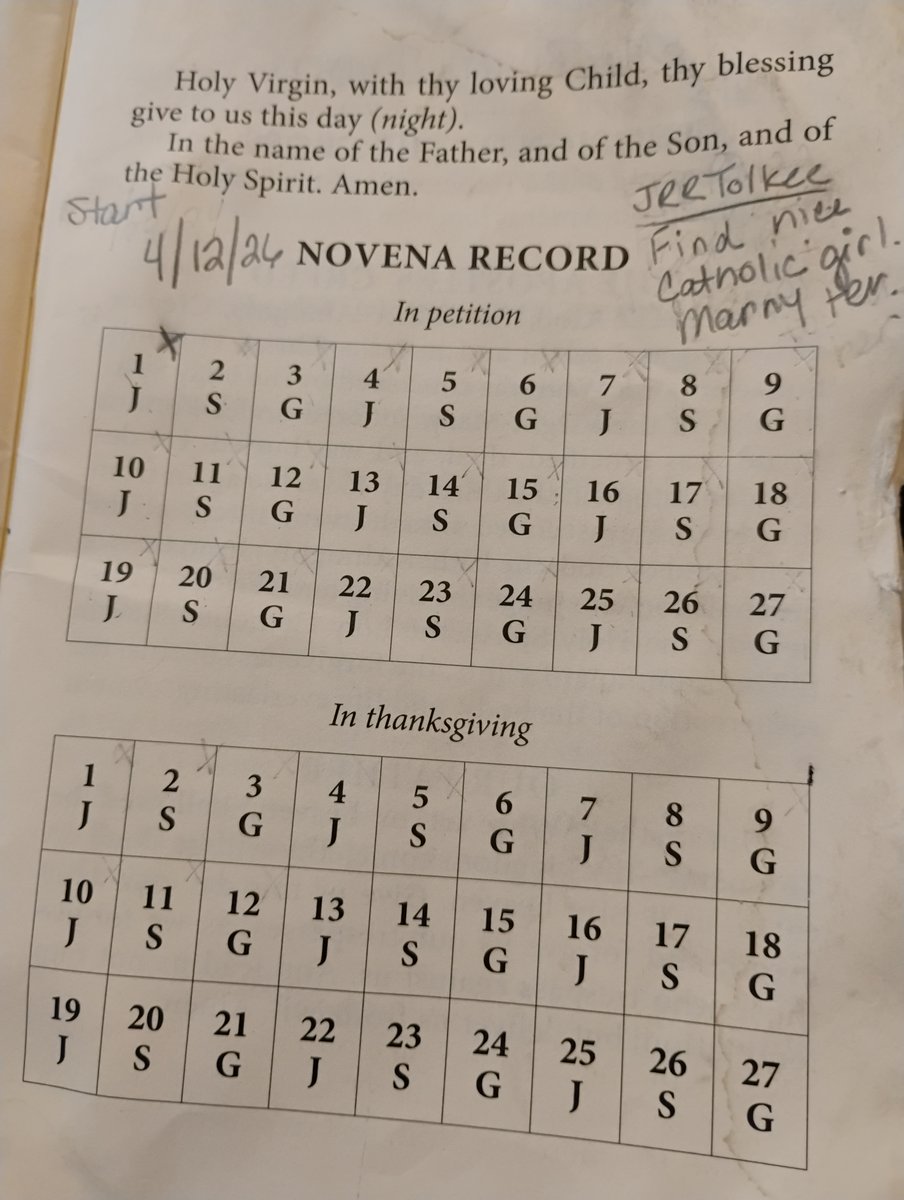 Holy Virgin, with thy loving Child, thy blessing
give to us this day (night).
In the name of the Father, and of the Son, and of
the Holy Spirit. Amen.
Start
4/12/26
JRR Tolkee
Find nice
Catholic girl.
Marry Her.
NOVENA RECORD
In petition
1 2 3 4 5 6 7 8 9
J S G J S G J S G
10 11 12 13 14 15 16 17 18
J S G J S G J S G
19 20 21 22 23 24 25 26 27
J S G J S G J S G
In thanksgiving
1 2 3 4 5 6 7 8 9
J S G J S G J S G
10 11 12 13 14 15 16 17 18
J S G J S G J S G
19 20 21 22 23 24 25 26 27
J S G J S G J S G